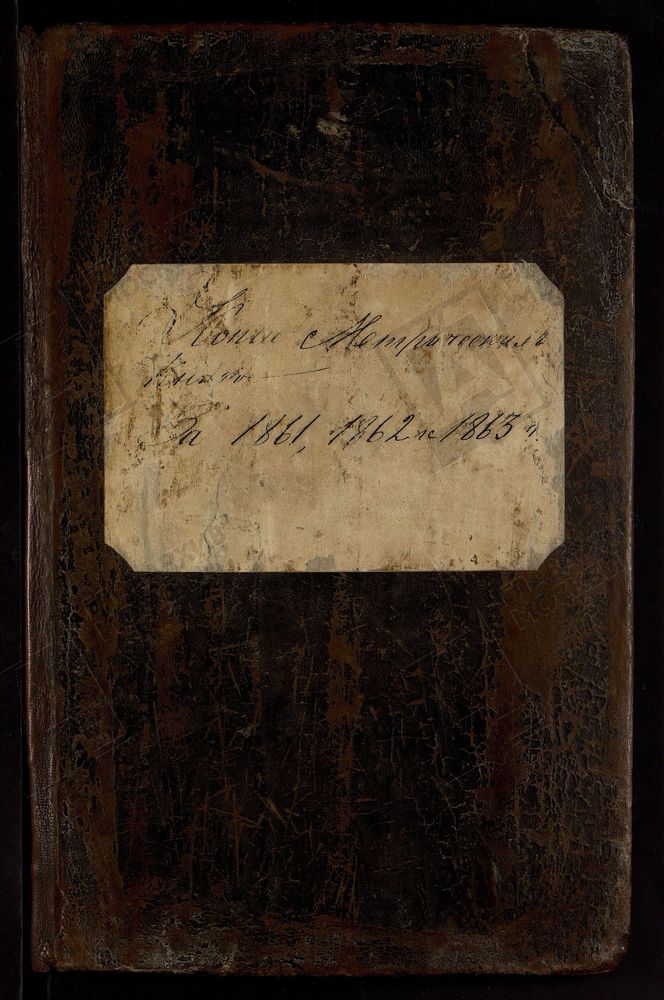 Копіи Метрическимъ
Книгъ
За 1861, 1862 и 1863 г.